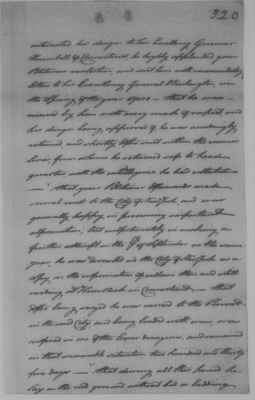 320
intimated his design to his Excellency Governor
Trumbull of Connecticut, he highly applauded your
Petitioners resolution, and sent him with recommendatory
letter to his Excellency General Washington in
the Spring of the year that he was
received by him with every mark of respect, and
his design being approved of, he was accordingly
retained, and shortly after sent within the enemies
lines, from whence he returned safe to head
quarters, with the intelligence he had
that your Petitioner afterwards made
several visits to the City of New York and was
generally happy in procuring important
information, but unfortunately in making a
further attempt on the of September in the same
year, he was detected in the City of New York as a
spy, on the information of
residing at in Connecticut — that
after being seized he was carried to the Provost
in the said City and being loaded with irons, was
confined in one of the lower dungeons, and remained
in that miserable situation two hundred and thirty
five days — that during all that period he
lay on the cold ground without bed or bedding